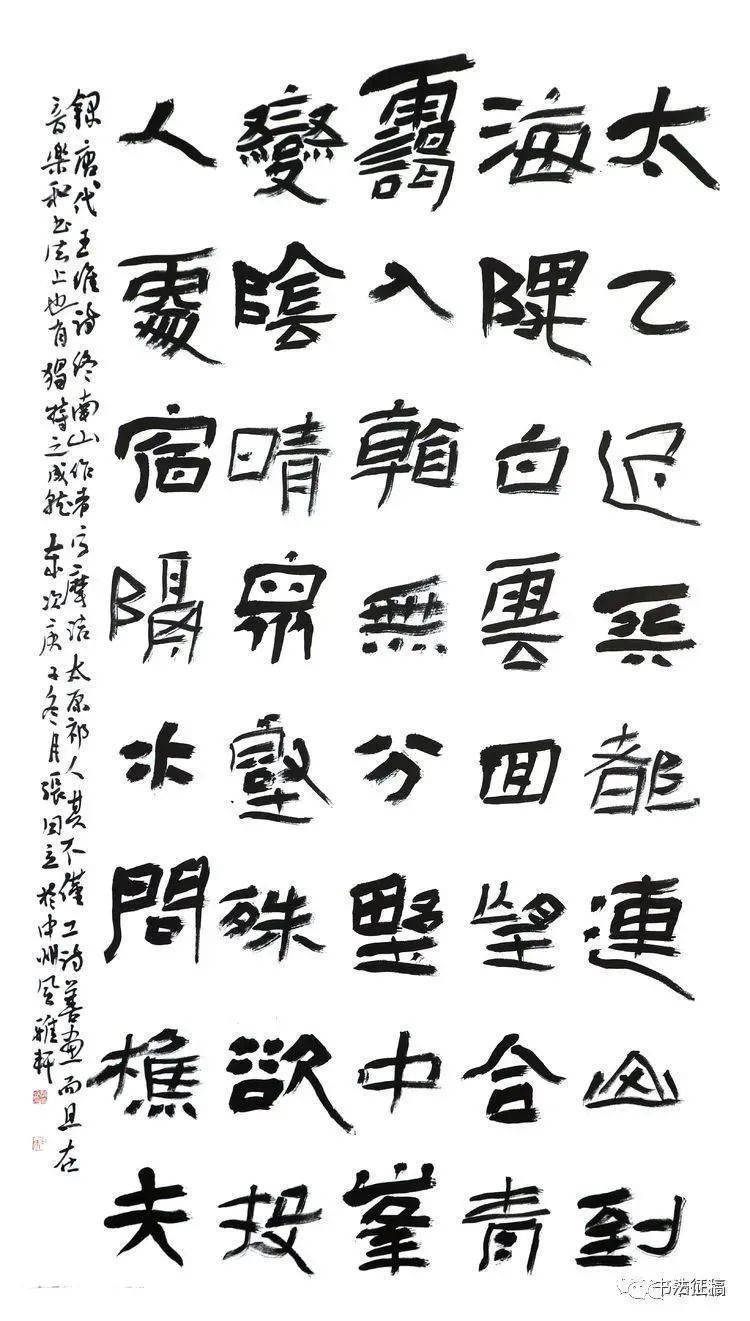 太乙近天都連山到
海隅白雲回望合青
靄入看無分野中峯
變陰晴眾壑殊欲投
人處宿隔水問樵夫
錄唐代王維詩終南山作者字摩詰太原祁人其不僅工詩善畫而且在
音樂和书法上也有獨特之成就 歲次庚子冬月張国立於中州風雅軒
书法征稿